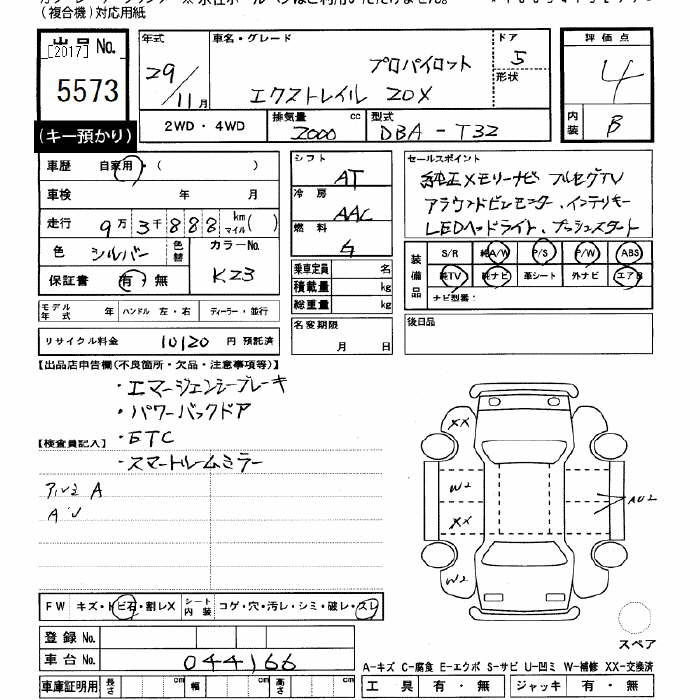 (複合機)対応用紙
出品 No.
[2017]
5573
(キー預かり)
年式
29/11月
車名・グレード
プロパイロット
エクストレイル 20X
ドア
5
形状
2WD・4WD
排気量 2000 cc
型式 DBA-T32
評価点
4
内装
B
車歴 自家用・( )
車検 年 月
走行 9万3千888 km マイル( )
色 シルバー 色替
カラーNo. KZ3
保証書 有・無
モデル年式 年 ハンドル 左・右 ディーラー・並行
リサイクル料金 10120 円 預託済
シフト
AT
冷房
AAC
燃料
乗車定員 名
積載量 kg
総重量 kg
名変期限
月 日
セールスポイント
純正メモリーナビ フルセグTV
アラウンドビューモニター、インテリキー
LEDヘッドライト、プッシュスタート
装備品
S/R 純A/W P/S P/W ABS
純TV 純ナビ 革シート 外ナビ エアB
ナビ型番:
後日品
【出品店申告欄(不良箇所・欠品・注意事項等)】
・エマージェンシーブレーキ
・パワーバックドア
・ETC
・スマートルームミラー
【検査員記入】
アルミ A
XX
W2
XX
W2
AU2
FW キズ・トビ石・割レX シート内装 コゲ・穴・汚レ・シミ・破レ・スレ
登録 No.
車台 No. 044166
車庫証明用 長さ cm 幅 cm 高さ cm
スペア
A-キズ C-腐食 E-エクボ S-サビ U-凹ミ W-補修 XX-交換済
工具 有・無 ジャッキ 有・無